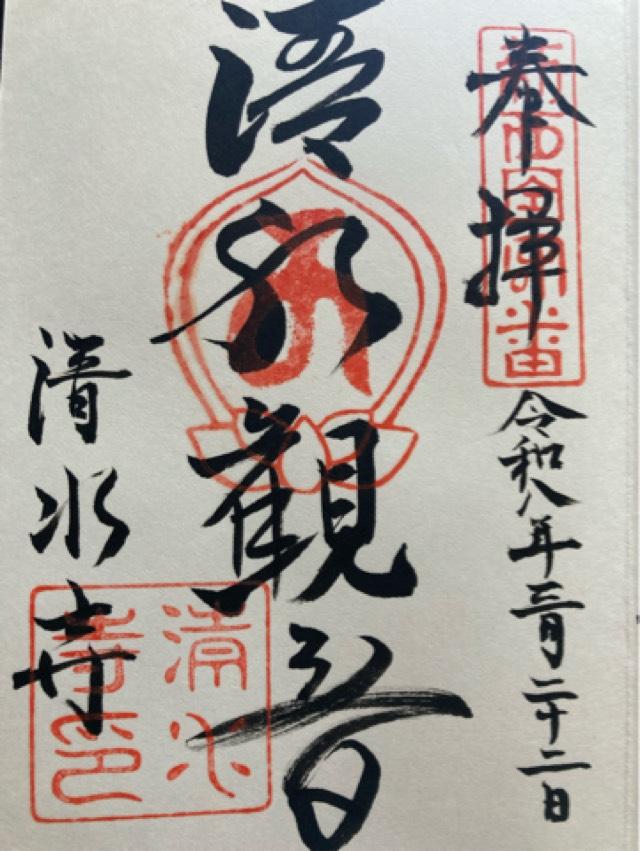 奉拝
令和八年三月二十二日
清水観音
清水寺
清水
寺印